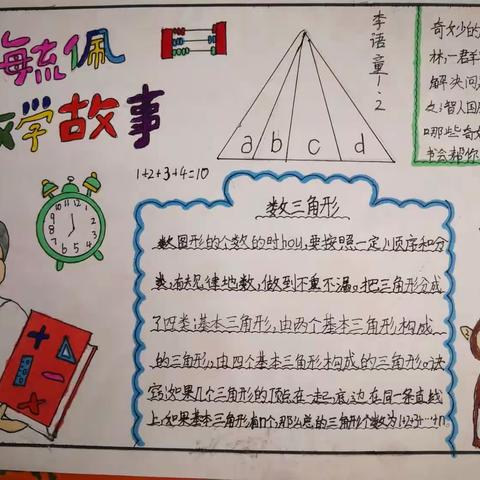 海毓佩
数学故事
李语童1.2
a b c d
1+2+3+4=10
奇妙的
林,一群
解决问
智人国
那些奇
书会帮你
数三角形
数图形的个数的时hou,要按照一定川顺序和分
类,有规律地数,做到不重不漏。把三角形分成
了四类:基本三角形,由两个基本三角形构成
的三角形,由四个基本三角形构成的三角形。诀
窍:如果几个三角形的顶点在一起,底边在同一条直线
上,如果基本三角形有n个,那么总的三角形个数为1+2+3+…+n